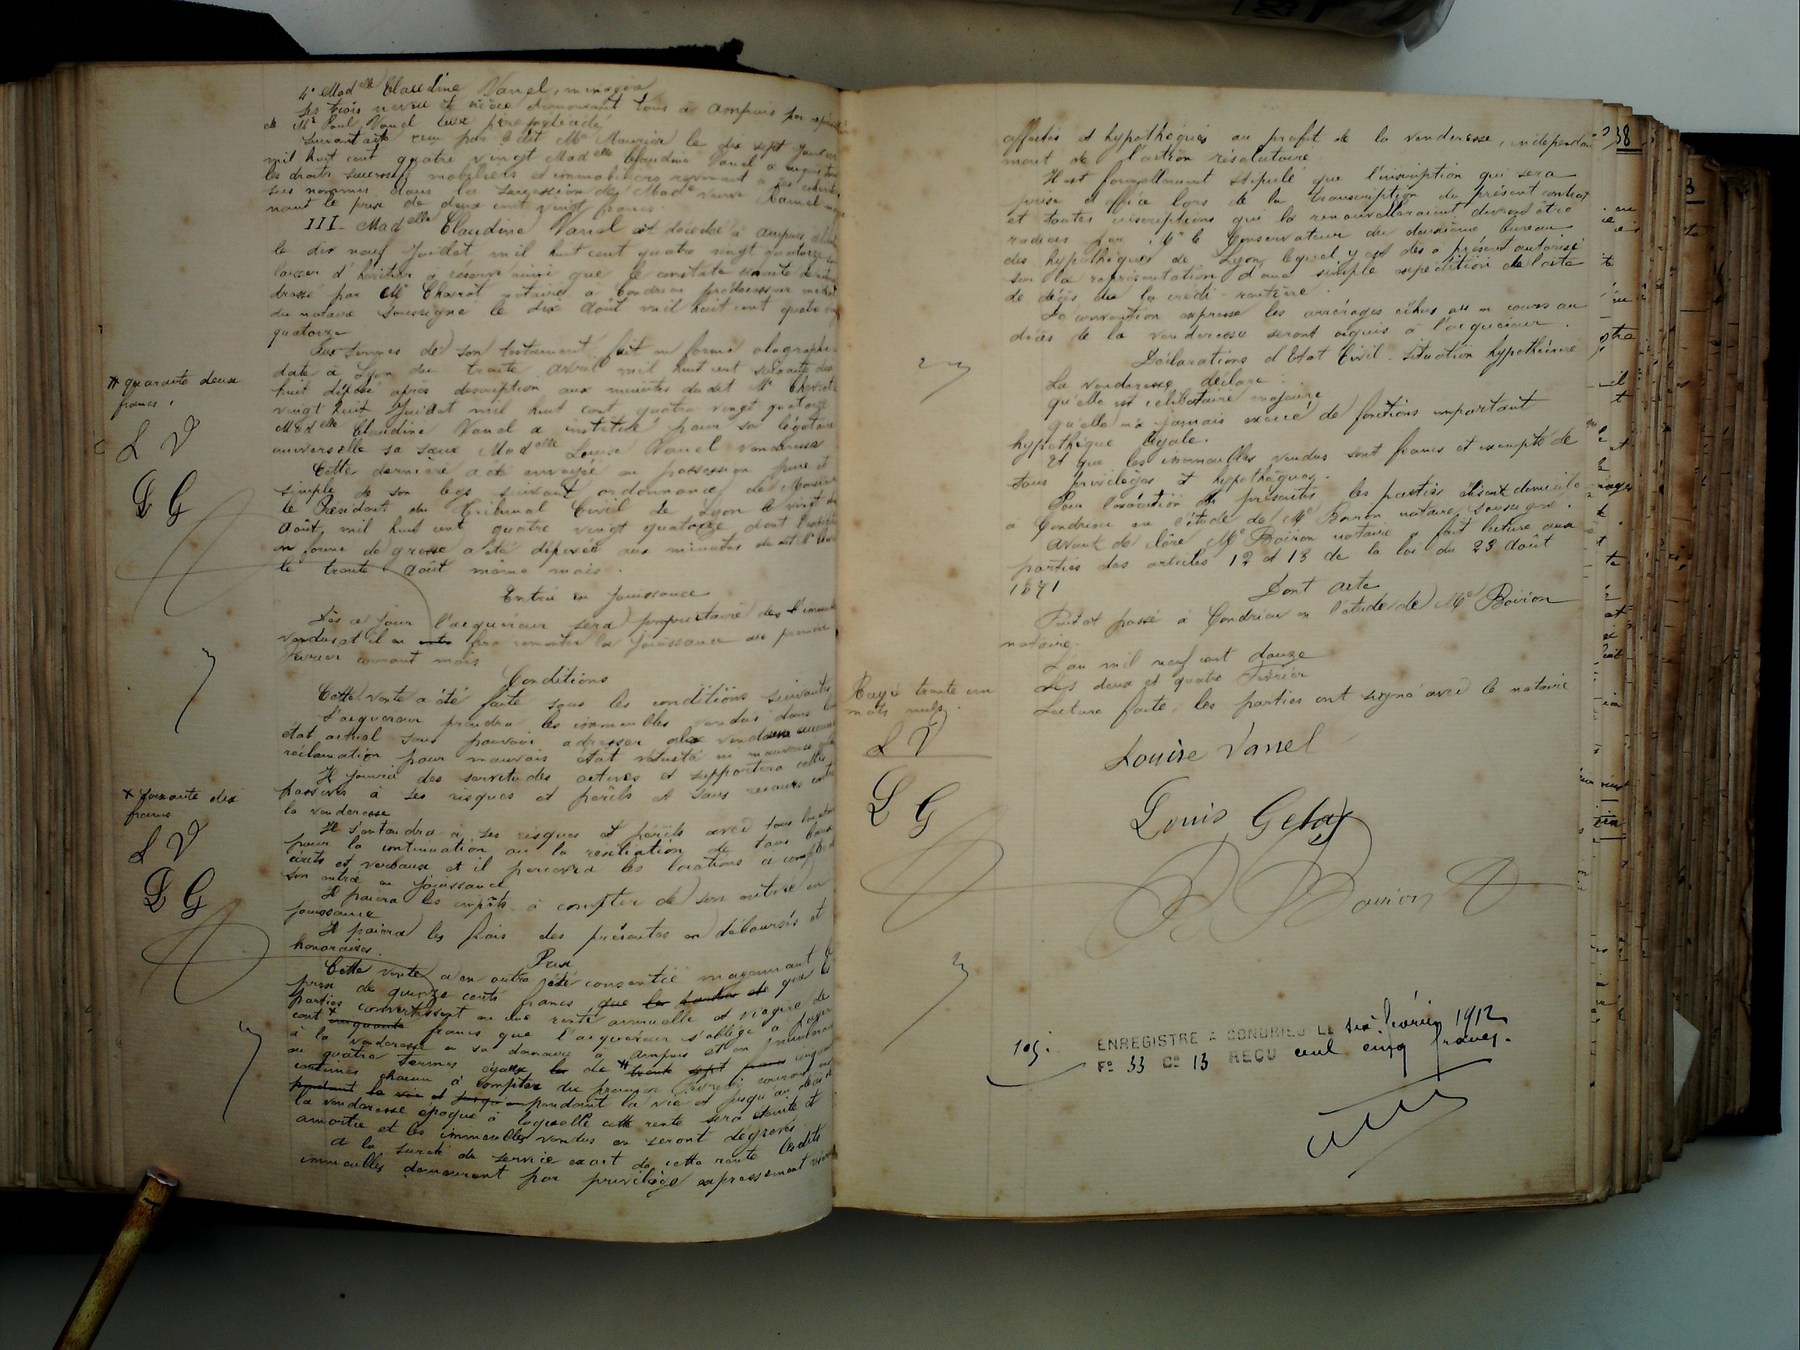 4° Mad elle Claudine Vanel, ménagère
les trois neveu et nièce demeurant tous à Ampuis par
de Mr Paul Vanel leur père prédécédé
Suivant acte reçu par ledit Me Mounier le dix sept
mil huit cent quatre vingt Mad elle Claudine Vanel a
les droits successifs mobiliers et immobiliers revenant à
ses dans la succession de Made veuve Vanel
nant le prix de deux cent vingt francs.
III - Mad elle Claudine Vanel est décédée à Ampuis
le dix neuf Juillet mil huit cent quatre vingt quatorze
laisser d'héritier à réserve ainsi que le constate
dressé par Me Chevrot notaire à Condrieu prédécesseur
du notaire soussigné le dix Août mil huit cent quatre
quatorze
Aux termes de son testament fait en forme olographe
date à Lyon du trente avril mil huit cent soixante dix
huit déposé après description aux minutes dudit Me Chevrot
vingt huit Juillet mil huit cent quatre vingt quatorze
Mad elle Claudine Vanel a institué pour sa légataire
universelle sa sœur Mad elle Louise Vanel venderesse
Cette dernière a été envoyée en possession pure et
simple de son legs suivant ordonnance de Monsieur
le Président du Tribunal Civil de Lyon le vingt
Août, mil huit cent quatre vingt quatorze dont
en forme de grosse a été déposée aux minutes dudit
le trente Août même mois.
Entrée en Jouissance
Dès ce jour l'acquéreur sera propriétaire des
vendus et il en fera remonter la jouissance au premier
Février courant mois
Conditions
Cette vente a été faite sous les conditions suivantes
L'acquéreur prendra les immeubles vendus dans
état actuel sans pouvoir adresser à la venderesse aucune
réclamation pour mauvais état vétusté ou mauvaise
Il jouira des servitudes actives et supportera celles
passives à ses risques et périls et sans recours contre
la venderesse
Il s'entendra à ses risques et périls avec tous
pour la continuation ou la résiliation de tous baux
écrits et verbaux et il percevra les locations à compter de
son entrée en jouissance
Il paiera les impôts à compter de son entrée en
jouissance
Il paiera les frais des présentes en déboursés et
honoraires.
Prix
Cette vente a en outre été consentie moyennant le
prix de quinze cents francs, que les parties et que les
parties convertissent en une rente annuelle et viagère de
cent * cinquante francs que l'acquéreur s'oblige à payer
à la venderesse en sa demeure à Ampuis et en
ou quatre termes égaux de ** trente sept francs
centimes chacun à compter du premier Février courant
pendant la vie et jusqu'au pendant la vie et jusqu'au décès de
la venderesse époque à laquelle cette rente sera éteinte et
amortie et les immeubles vendus en seront dégrevés
A la sureté du service exact de cette rente lesdits
immeubles demeurent par privilège expressément
** quarante deux
francs.
L V
L G
* soixante dix
francs
L V
L G
38
affectés et hypothéqués au profit de la venderesse, indépendam
ment de l'action résolutoire
Il est formellement stipulé que l'inscription qui sera
prise d'office lors de la transcription du présent contrat
et toutes inscriptions qui la renouvelleraient devront être
radiées par Mr le Conservateur du deuxième bureau
des hypothèques de Lyon lequel y est dès à présent autorisé
sur la représentation d'une simple expédition de l'acte
de décès de la crédi-rentière.
De convention expresse les arrérages échus ou en cours au
décès de la venderesse seront acquis à l'acquéreur.
Déclarations d'Etat Civil - Situation hypothécaire
La venderesse déclare:
qu'elle est célibataire majeure
qu'elle n'a jamais exercé de fonctions emportant
hypothèque légale.
Et que les immeubles vendus sont francs et exempts de
tous privilèges et hypothèques.
Pour l'exécution des présentes, les parties élisent domicile
à Condrieu en l'étude de Me Boiron notaire soussigné.
Avant de clore Me Boiron notaire a fait lecture aux
parties des articles 12 et 13 de la loi du 23 Août
1871
Dont acte
Fait et passé à Condrieu en l'étude de Me Boiron
notaire.
L'an mil neuf cent douze
Les deux et quatre Février
Lecture faite, les parties ont signé avec le notaire
Rayé trente un
mots nuls.
L V
L G
Louise Vanel
Louis Gelas
Boiron
105.
ENREGISTRE A CONDRIEU LE six février 1912
Fo 33 Co 13 REÇU cent cinq francs.